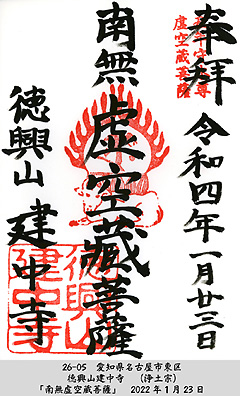 奉拝
虚空蔵菩薩
令和四年一月廿三日
南無虚空蔵菩薩
徳興山建中寺
徳興山
建中寺
26-05 愛知県名古屋市東区
徳興山建中寺 (浄土宗)
「南無虚空蔵菩薩」 2022年1月23日